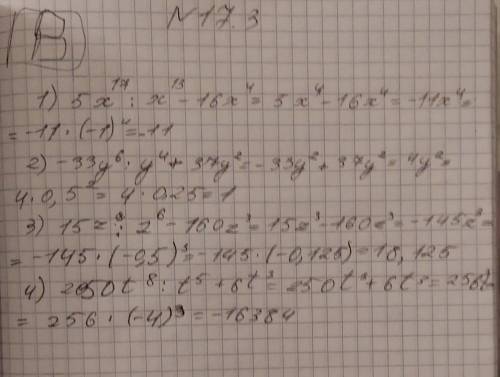 N17.3
В
1) 5x¹⁷ : x¹³ - 16x⁴ = 5x⁴ - 16x⁴ = -11x⁴ =
= -11 · (-1)⁴ = -11
2) -33y⁶ : y⁴ + 37y² = -33y² + 37y² = 4y² =
4 · 0,5² = 4 · 0,25 = 1
3) 15z⁹ : z⁶ - 160z³ = 15z³ - 160z³ = -145z³ =
= -145 · (-0,5)³ = -145 · (-0,125) = 18,125
4) 250t⁸ : t⁵ + 6t³ = 250t³ + 6t³ = 256t³
= 256 · (-4)³ = -16384